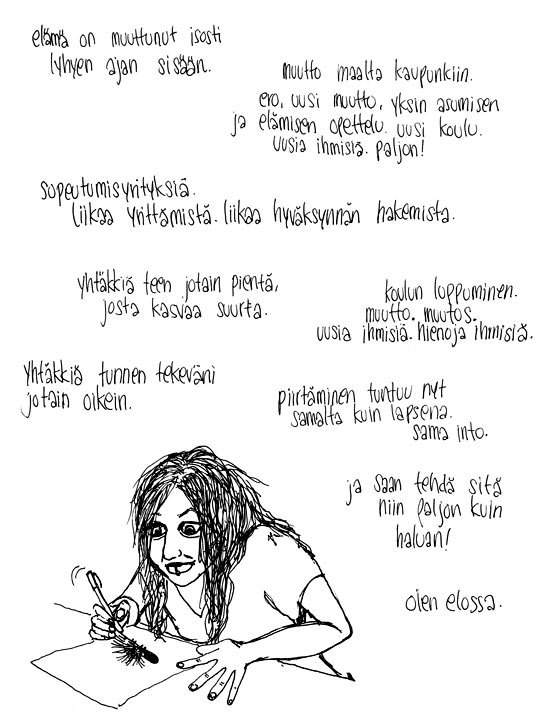 elämä on muuttunut isosti
lyhyen ajan sisään.
muutto maalta kaupunkiin.
ero, uusi muutto, yksin asumisen
ja elämisen opettelu. uusi koulu.
uusia ihmisiä. paljon!
sopeutumisyrityksiä.
liikaa yrittämistä. liikaa hyväksynnän hakemista.
yhtäkkiä teen jotain pientä,
josta kasvaa suurta.
koulun loppuminen.
muutto. muutos.
uusia ihmisiä. hienoja ihmisiä.
yhtäkkiä tunnen tekeväni
jotain oikein.
piirtäminen tuntuu nyt
samalta kuin lapsena.
sama into.
ja saan tehdä sitä
niin paljon kuin
haluan!
olen elossa.